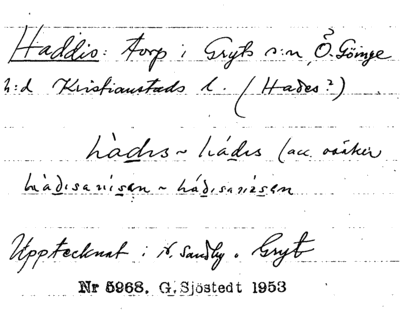 Haddis: torp i Gryts s:n, Ö. Göinge
h:d Kristianstads l. (Hades?)
hàdıs ~ hádıs (acc. osäker
hàdısanısən ~ hádısanısən
Upptecknat i N. Sandby o. Gryt
Nr 5968. G. Sjöstedt 1953